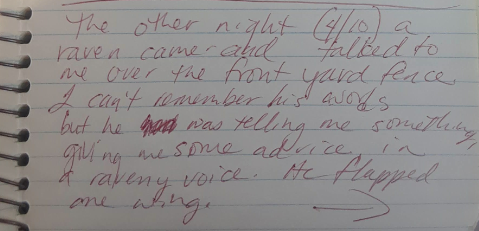 The other night (4/10) a
raven came and talked to
me over the front yard fence.
I can't remember his words
but he was telling me something,
giving me some advice, in
a raveny voice. He flapped
one wing.